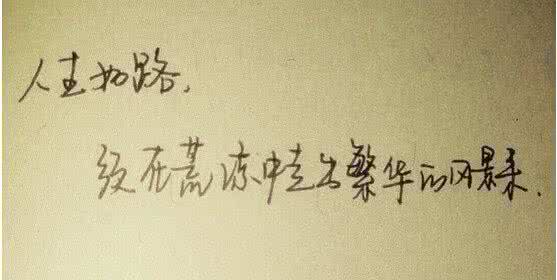 人生如路，
须在荒凉中走出繁华的风景来.